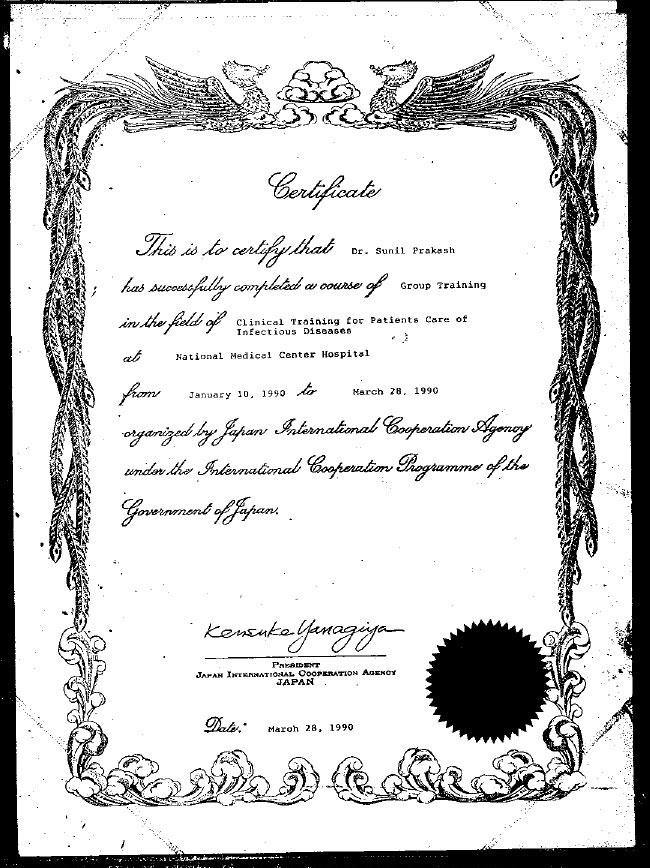 Certificate
This is to certify that Dr. Sunil Prakash
has successfully completed a course of Group Training
in the field of Clinical Training for Patients Care of
Infectious Diseases
at National Medical Center Hospital
from January 10, 1990 to March 28, 1990
organized by Japan International Cooperation Agency
under the International Cooperation Programme of the
Government of Japan.
Kensuke Yanagiya
PRESIDENT
JAPAN INTERNATIONAL COOPERATION AGENCY
JAPAN
Date: March 28, 1990